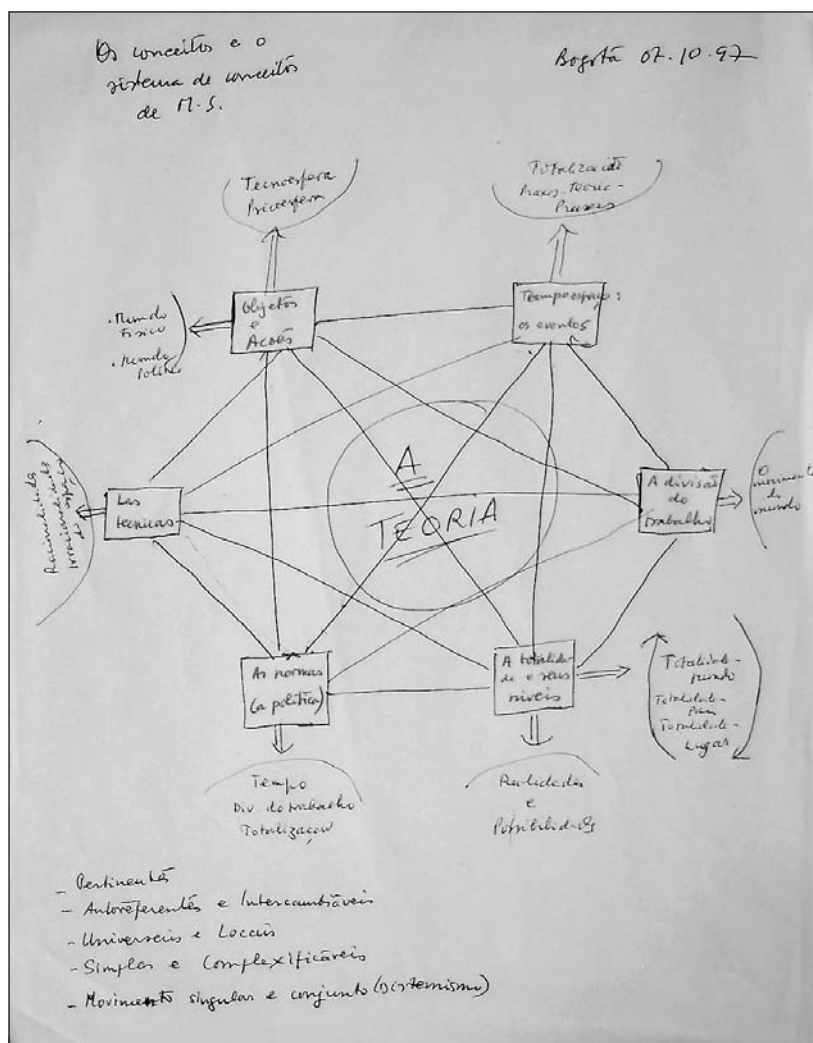 Os conceitos e o
sistema de conceitos
de M.S.
Bogotá 07.10.97
Tecnoesfera
Psicoesfera
Totalização
Praxis-Teoria-
Praxis
. Mundo
Físico
. Mundo
Objetos
e
Acões
Tempoespaço:
os eventos
A
TEORIA
Las
tecnicas
Racionalidades
Irracionalidades
do
espaço
A divisão
do
trabalho
O
movimento
do
mundo
As normas
(a política)
A totalida-
de e seus
níveis
Totalidade-
mundo
Totalidade-
País
Totalidade-
Lugar
Tempo
Div. do trabalho
Totalizaçou
Realidades
e
Possibilidades
- Pertinentes
- Autoreferentes e Intercambiáveis
- Universais e Locais
- Simples e Complexificáveis
- Movimento singular e conjunto (Sistemismo)